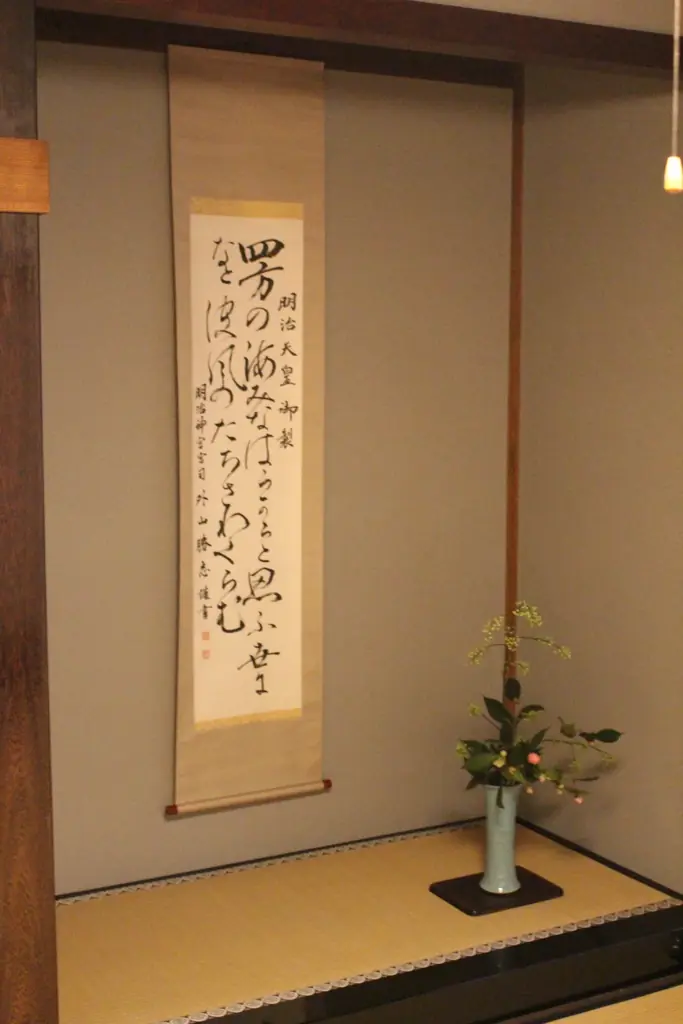 明治天皇御製
四方の海みなはらからと思ふ世に
なと波風のたちさわくらむ
明治神宮宮司 外山勝志 謹書